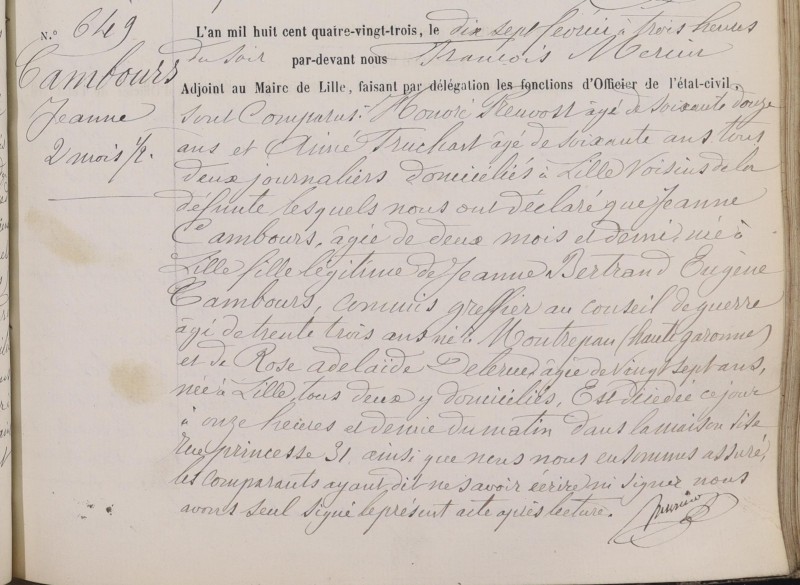 N.° 649
Cambours
Jeanne
2 mois 1/2.
L'an mil huit cent quatre-vingt-trois, le dix sept février à trois heures
du soir par-devant nous François Mercier
Adjoint au Maire de Lille, faisant par délégation les fonctions d'Officier de l'état-civil,
sont comparus: Honoré Pleuvost âgé de soixante douze
ans et Aimé Truchart âgé de soixante ans, tous
deux journaliers domiciliés à Lille Voisins de la
défunte lesquels nous ont déclaré que Jeanne
Cambours, âgée de deux mois et demi, née à
Lille fille légitime de Jeanne Bertrand Eugène
Cambours, commis greffier au conseil de guerre
âgé de trente trois ans né à Montrepau (haute garonne)
et de Rose adelaïde Delerue, âgée de vingt sept ans,
née à Lille, tous deux y domiciliés, Est décédée ce jour
à onze heures et demie du matin dans la maison sise
rue princesse 31 ainsi que nous nous en sommes assuré,
les comparants ayant dit ne savoir écrire ni signer nous
avons seul signé le présent acte après lecture.